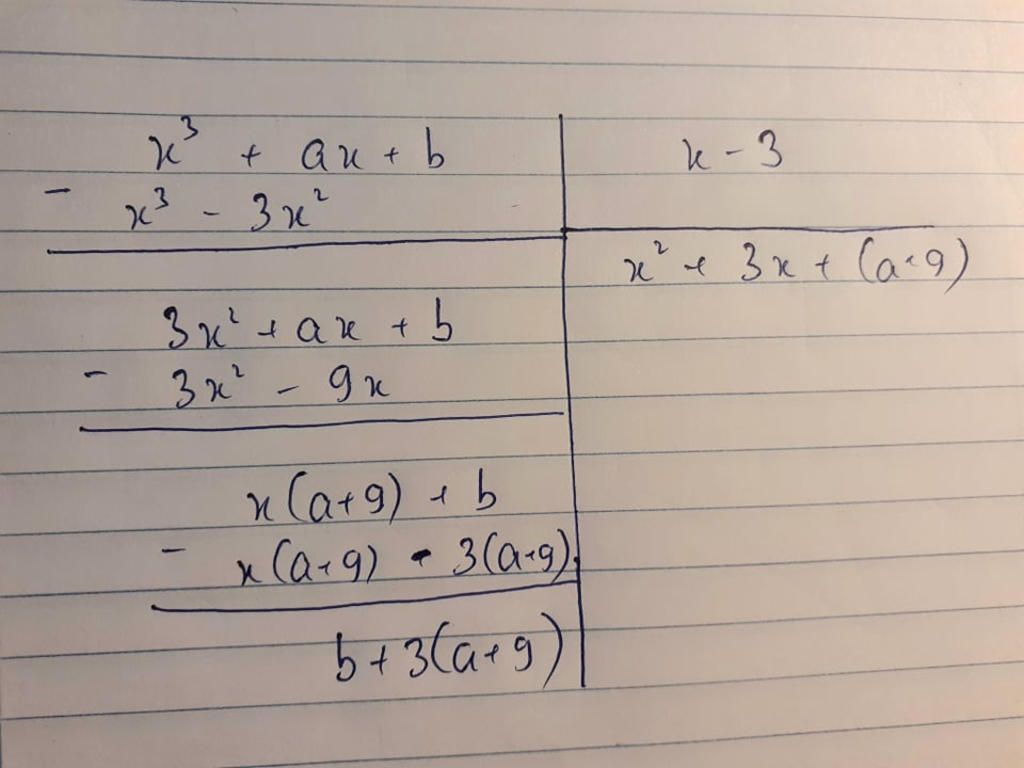 x³ + ax + b
x - 3
- x³ - 3x²
x² + 3x + (a+9)
3x² + ax + b
- 3x² - 9x
x(a+9) + b
- x(a+9) - 3(a+9)
b + 3(a+9)